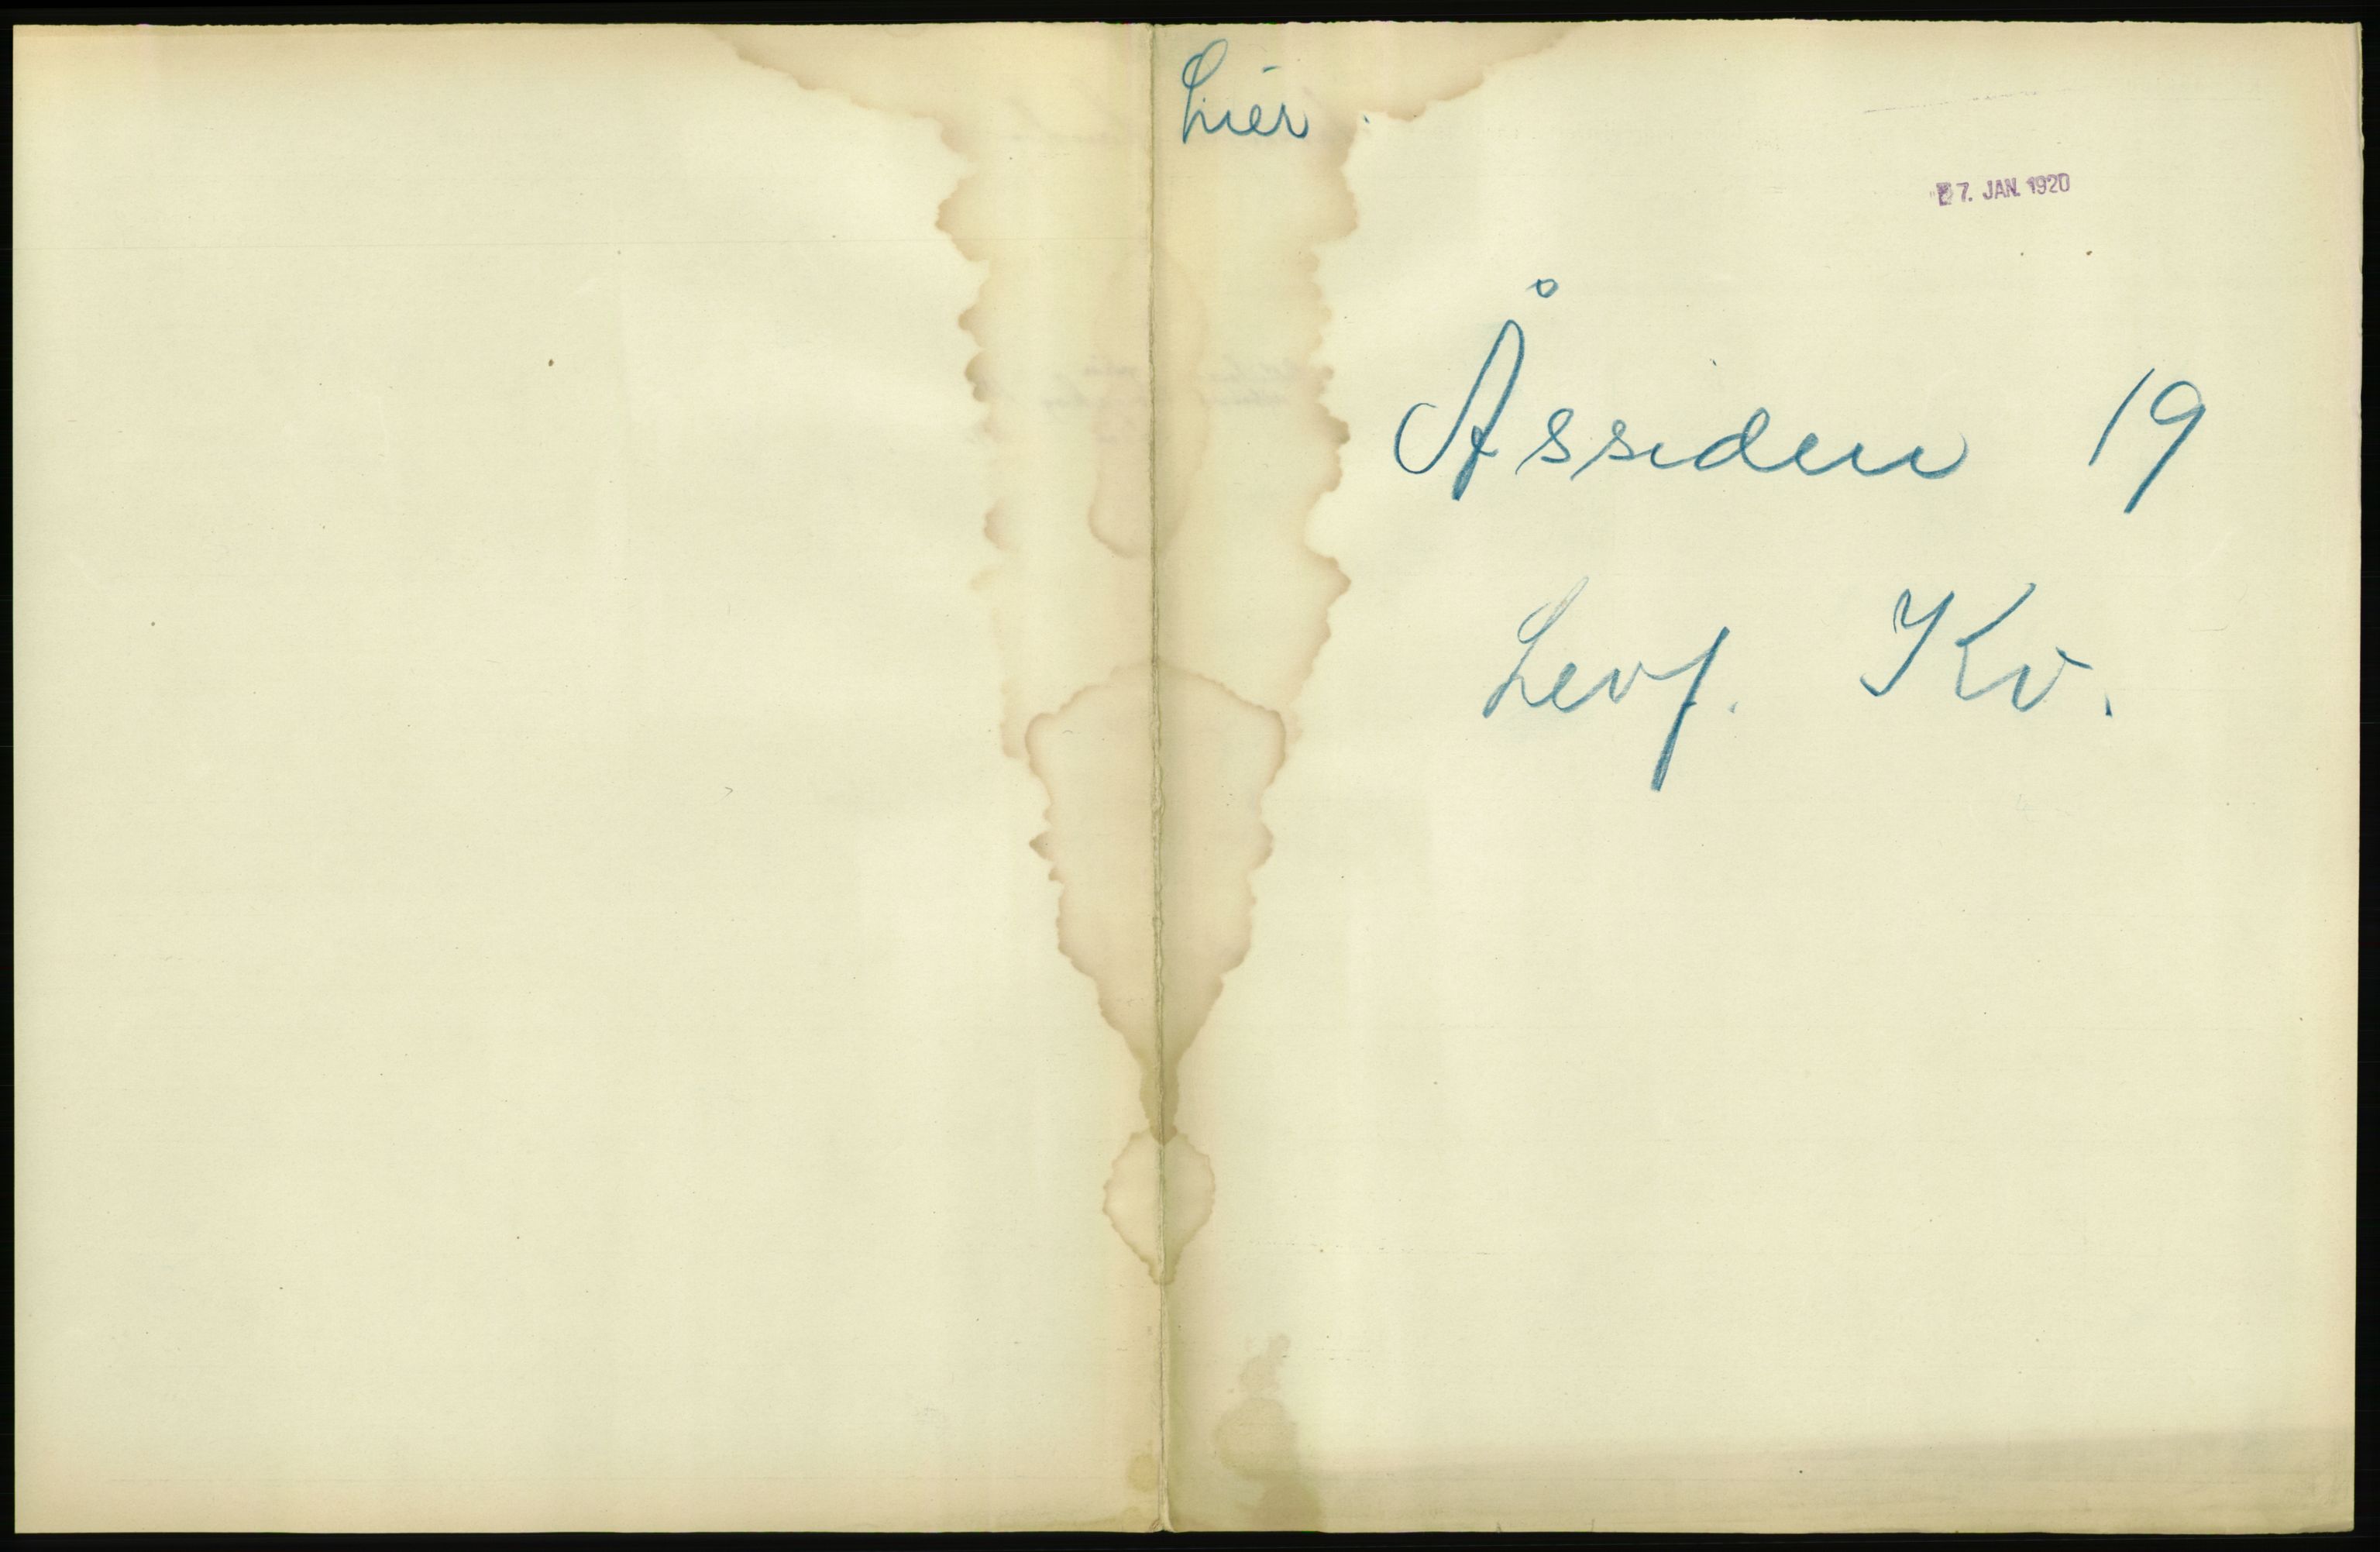 Lier.
27. JAN. 1920
Åssiden 19
Levf. Kv.